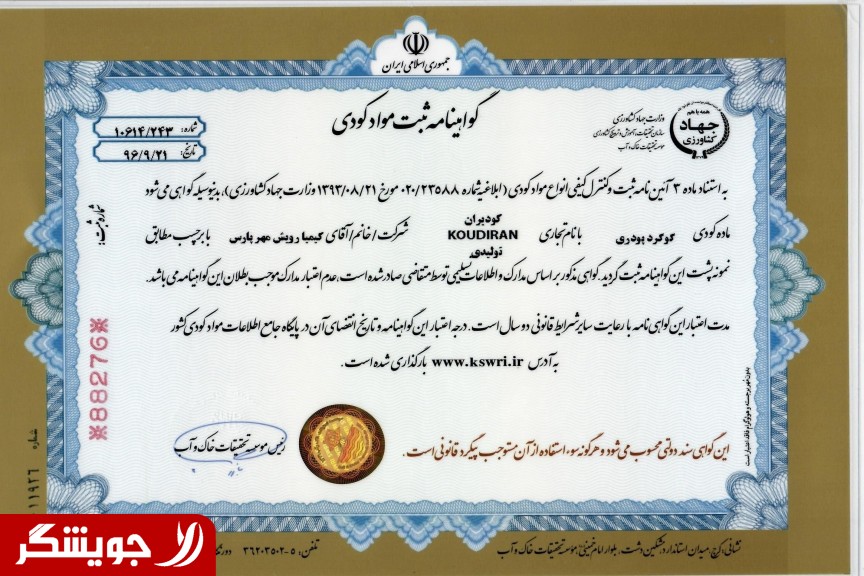 جمهوری اسلامی ایران
گواهینامه ثبت مواد کودی
شماره: ۱۰۶۱۴/۲۴۳
تاریخ: ۹۶/۹/۲۱
همه با هم
جهاد
کشاورزی
وزارت جهاد کشاورزی
سازمان تحقیقات، آموزش و ترویج کشاورزی
موسسه تحقیقات خاک و آب
به استناد ماده ۳ آئین نامه ثبت و کنترل کیفی انواع مواد کودی (ابلاغیه شماره ۰۲۰/۲۳۵۸۸ مورخ ۱۳۹۳/۰۸/۲۱ وزارت جهاد کشاورزی)، بدینوسیله گواهی می شود
ماده کودی گوگرد پودری با نام تجاری کودیران KOUDIRAN تولیدی شرکت/خانم/آقای کیمیا رویش مهر پارس با برچسب مطابق
نمونه پشت این گواهینامه ثبت گردید. گواهی مذکور بر اساس مدارک و اطلاعات تسلیمی توسط متقاضی صادر شده است، عدم اعتبار مدارک موجب بطلان این گواهینامه می باشد.
مدت اعتبار این گواهی نامه با رعایت سایر شرایط قانونی دو سال است. درجه اعتبار این گواهینامه و تاریخ انقضای آن در پایگاه جامع اطلاعات مواد کودی کشور
به آدرس www.kswri.ir بارگذاری شده است.
این گواهی سند دولتی محسوب می شود و هرگونه سوء استفاده از آن مستوجب پیگرد قانونی است.
رئیس موسسه تحقیقات خاک و آب
شماره ثبت:
※88276※
شماره
۱۱۹۲۶
بدون مهر برجسته و هولوگرام فاقد اعتبار است
نشانی: کرج، میدان استاندارد، مشکین دشت، بلوار امام خمینی، موسسه تحقیقات خاک و آب
تلفن: ۵-۳۶۲۰۳۵۰۲
جویشگر